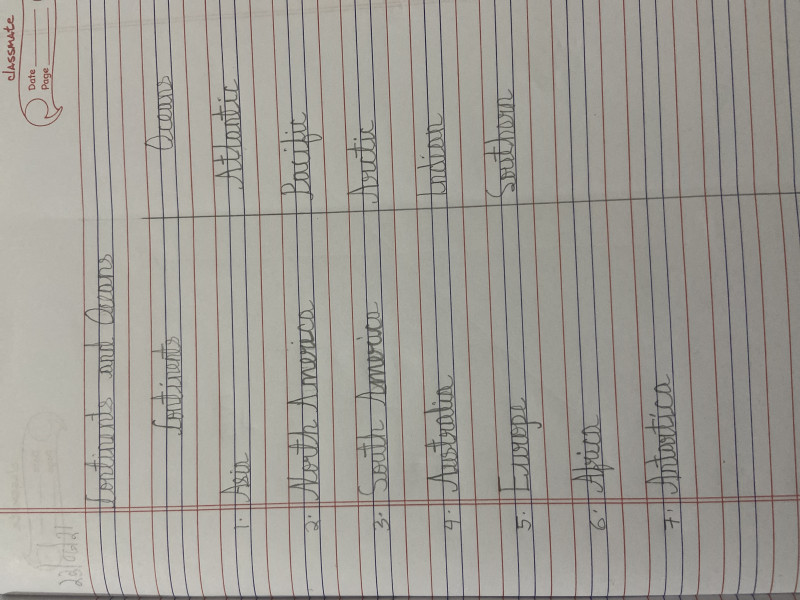 classmate
Date
Page
Continents and Oceans
Continents Oceans
1. Asia Atlantic
2. North America Pacific
3. South America Arctic
4. Australia Indian
5. Europe Southern
6. Africa
7. Antartica